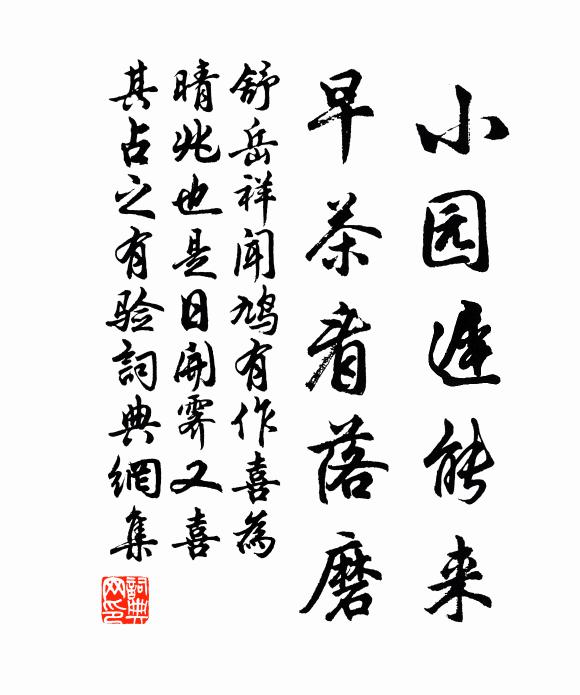 小园遲能来
早茶看落磨
舒岳祥闻鸠有作喜為
晴兆也是日開霽又喜
其占之有验詞典網集
詞典
网印